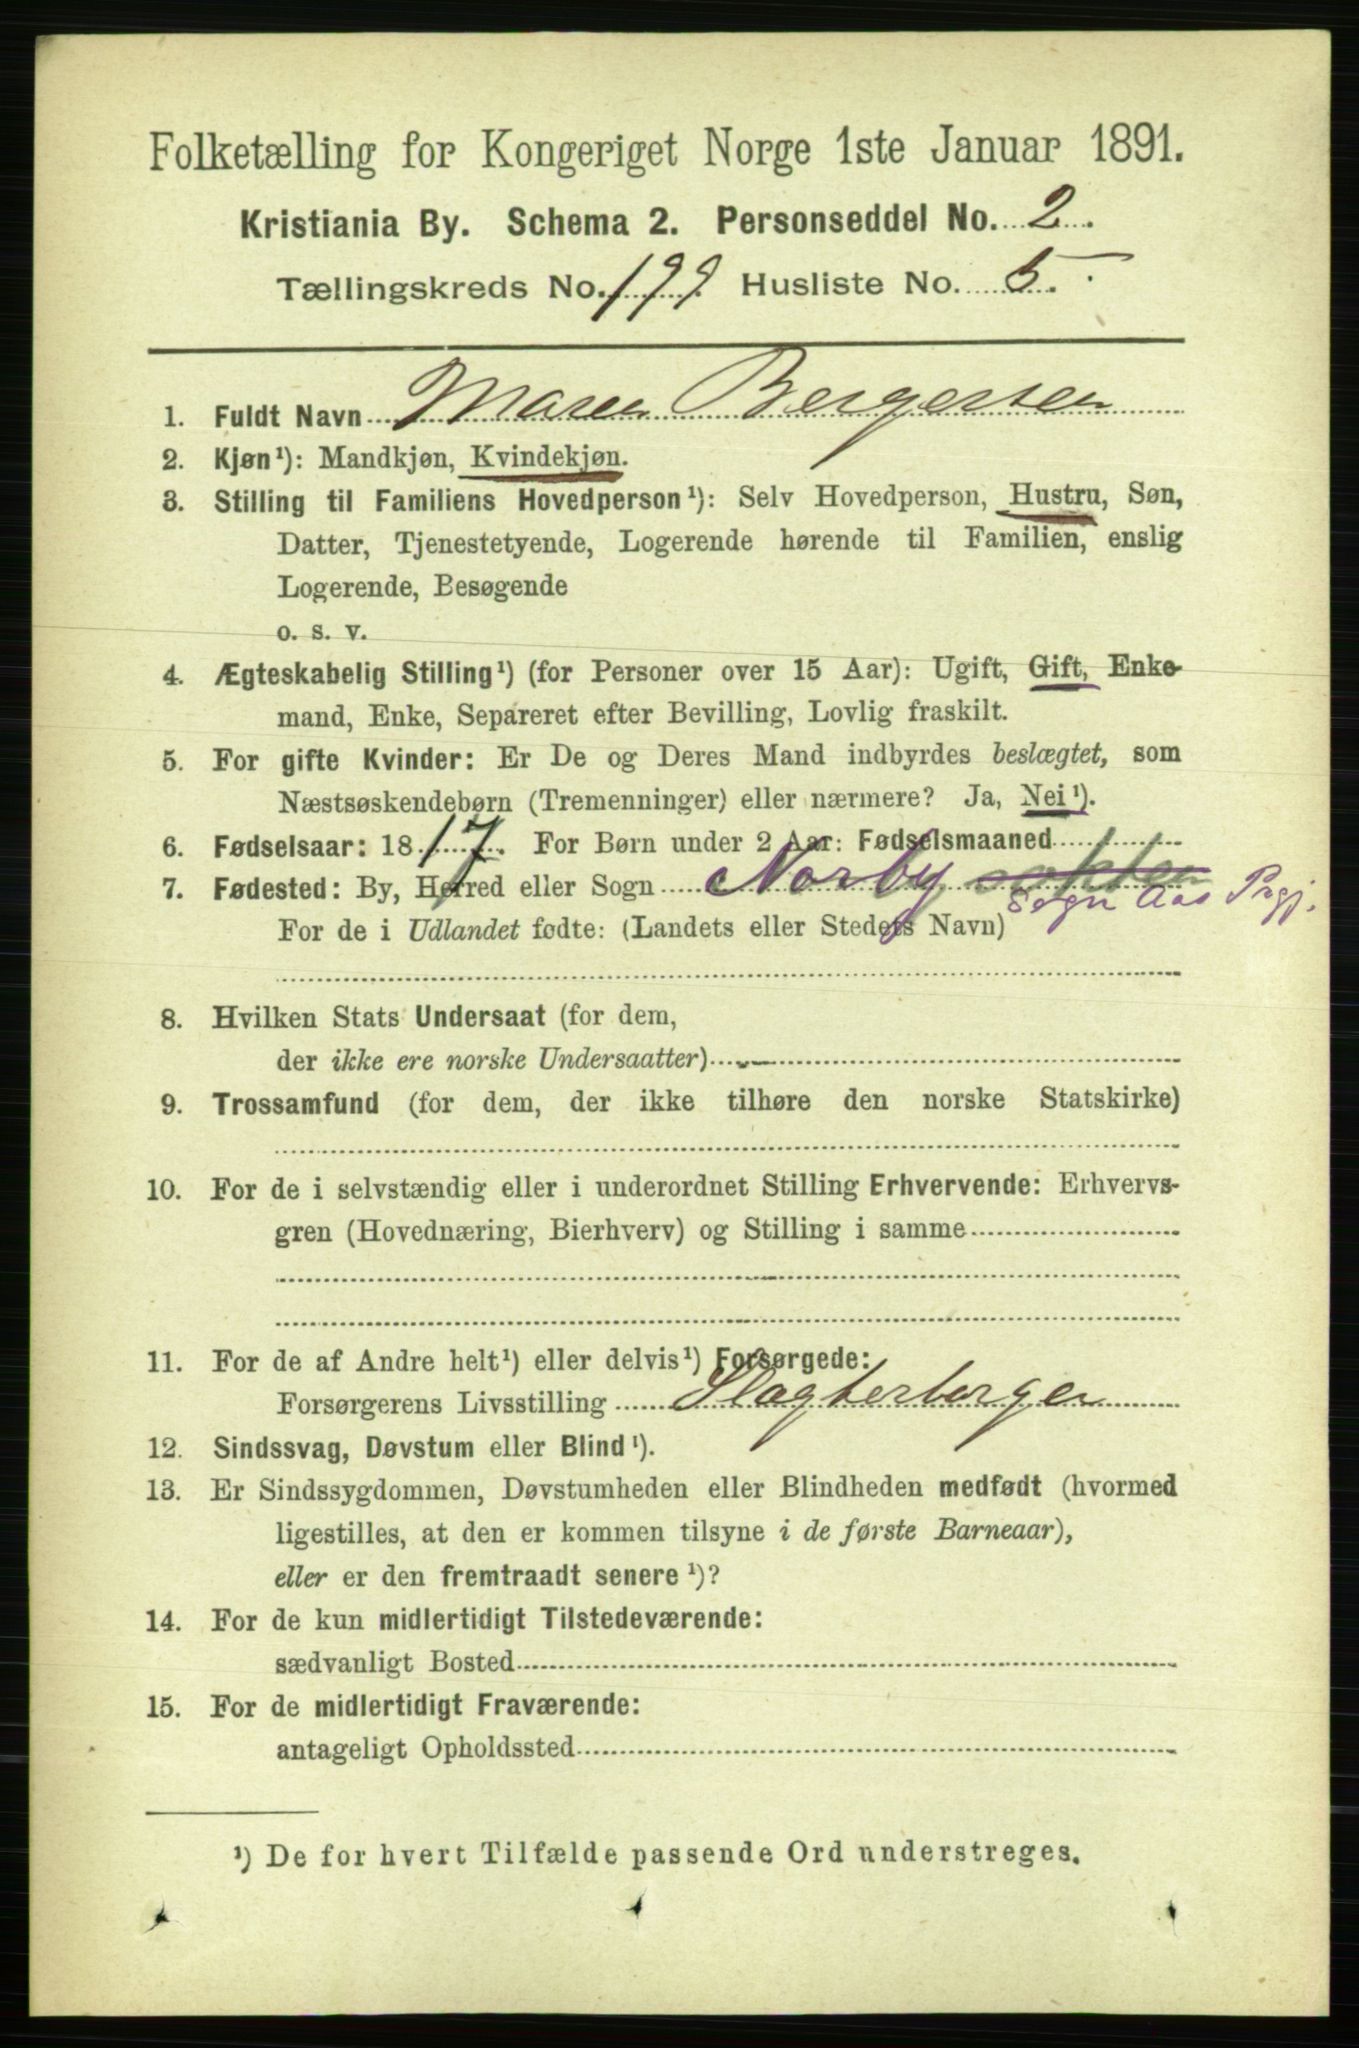 Folketælling for Kongeriget Norge 1ste Januar 1891.
Kristiania By. Schema 2. Personseddel No. 2.
Tællingskreds No. 199. Husliste No. 5.
1. Fuldt Navn Maren Bergersen
2. Kjøn¹): Mandkjøn, Kvindekjøn.
3. Stilling til Familiens Hovedperson¹): Selv Hovedperson, Hustru, Søn,
Datter, Tjenestetyende, Logerende hørende til Familien, enslig
Logerende, Besøgende
o. s. v.
4. Ægteskabelig Stilling¹) (for Personer over 15 Aar): Ugift, Gift, Enke-
mand, Enke, Separeret efter Bevilling, Lovlig fraskilt.
5. For gifte Kvinder: Er De og Deres Mand indbyrdes beslægtet, som
Næstsøskendebørn (Tremenninger) eller nærmere? Ja, Nei¹).
6. Fødselsaar: 1817. For Børn under 2 Aar: Fødselsmaaned
7. Fødested: By, Herred eller Sogn Norby
Sogn Aas Prgj.
For de i Udlandet fødte: (Landets eller Stedets Navn)
8. Hvilken Stats Undersaat (for dem,
der ikke ere norske Undersaatter)
9. Trossamfund (for dem, der ikke tilhøre den norske Statskirke)
10. For de i selvstændig eller i underordnet Stilling Erhvervende: Erhvervs-
gren (Hovednæring, Bierhverv) og Stilling i samme
11. For de af Andre helt¹) eller delvis¹) Forsørgede:
Forsørgerens Livsstilling Slagterborger
12. Sindssvag, Døvstum eller Blind¹).
13. Er Sindssygdommen, Døvstumheden eller Blindheden medfødt (hvormed
ligestilles, at den er kommen tilsyne i de første Barneaar),
eller er den fremtraadt senere¹)?
14. For de kun midlertidigt Tilstedeværende:
sædvanligt Bosted
15. For de midlertidigt Fraværende:
antageligt Opholdssted
¹) De for hvert Tilfælde passende Ord understreges.